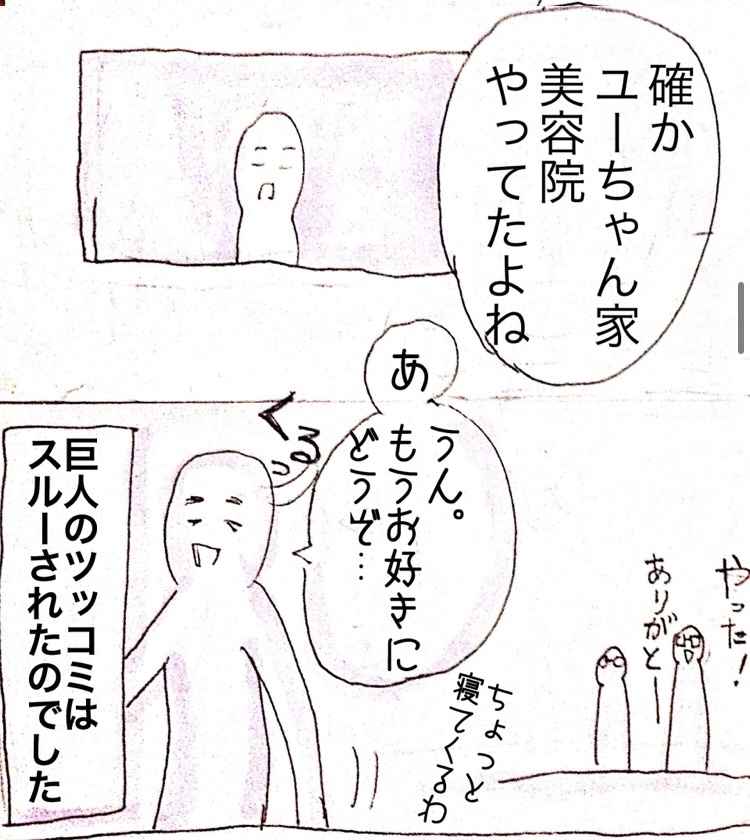 確か
ユーちゃん家
美容院
やってたよね
あ
うん。
もうお好きに
どうぞ…
くるっ
やった!
ありがとー
ちょっと
寝てくるわ
巨人のツッコミは
スルーされたのでした